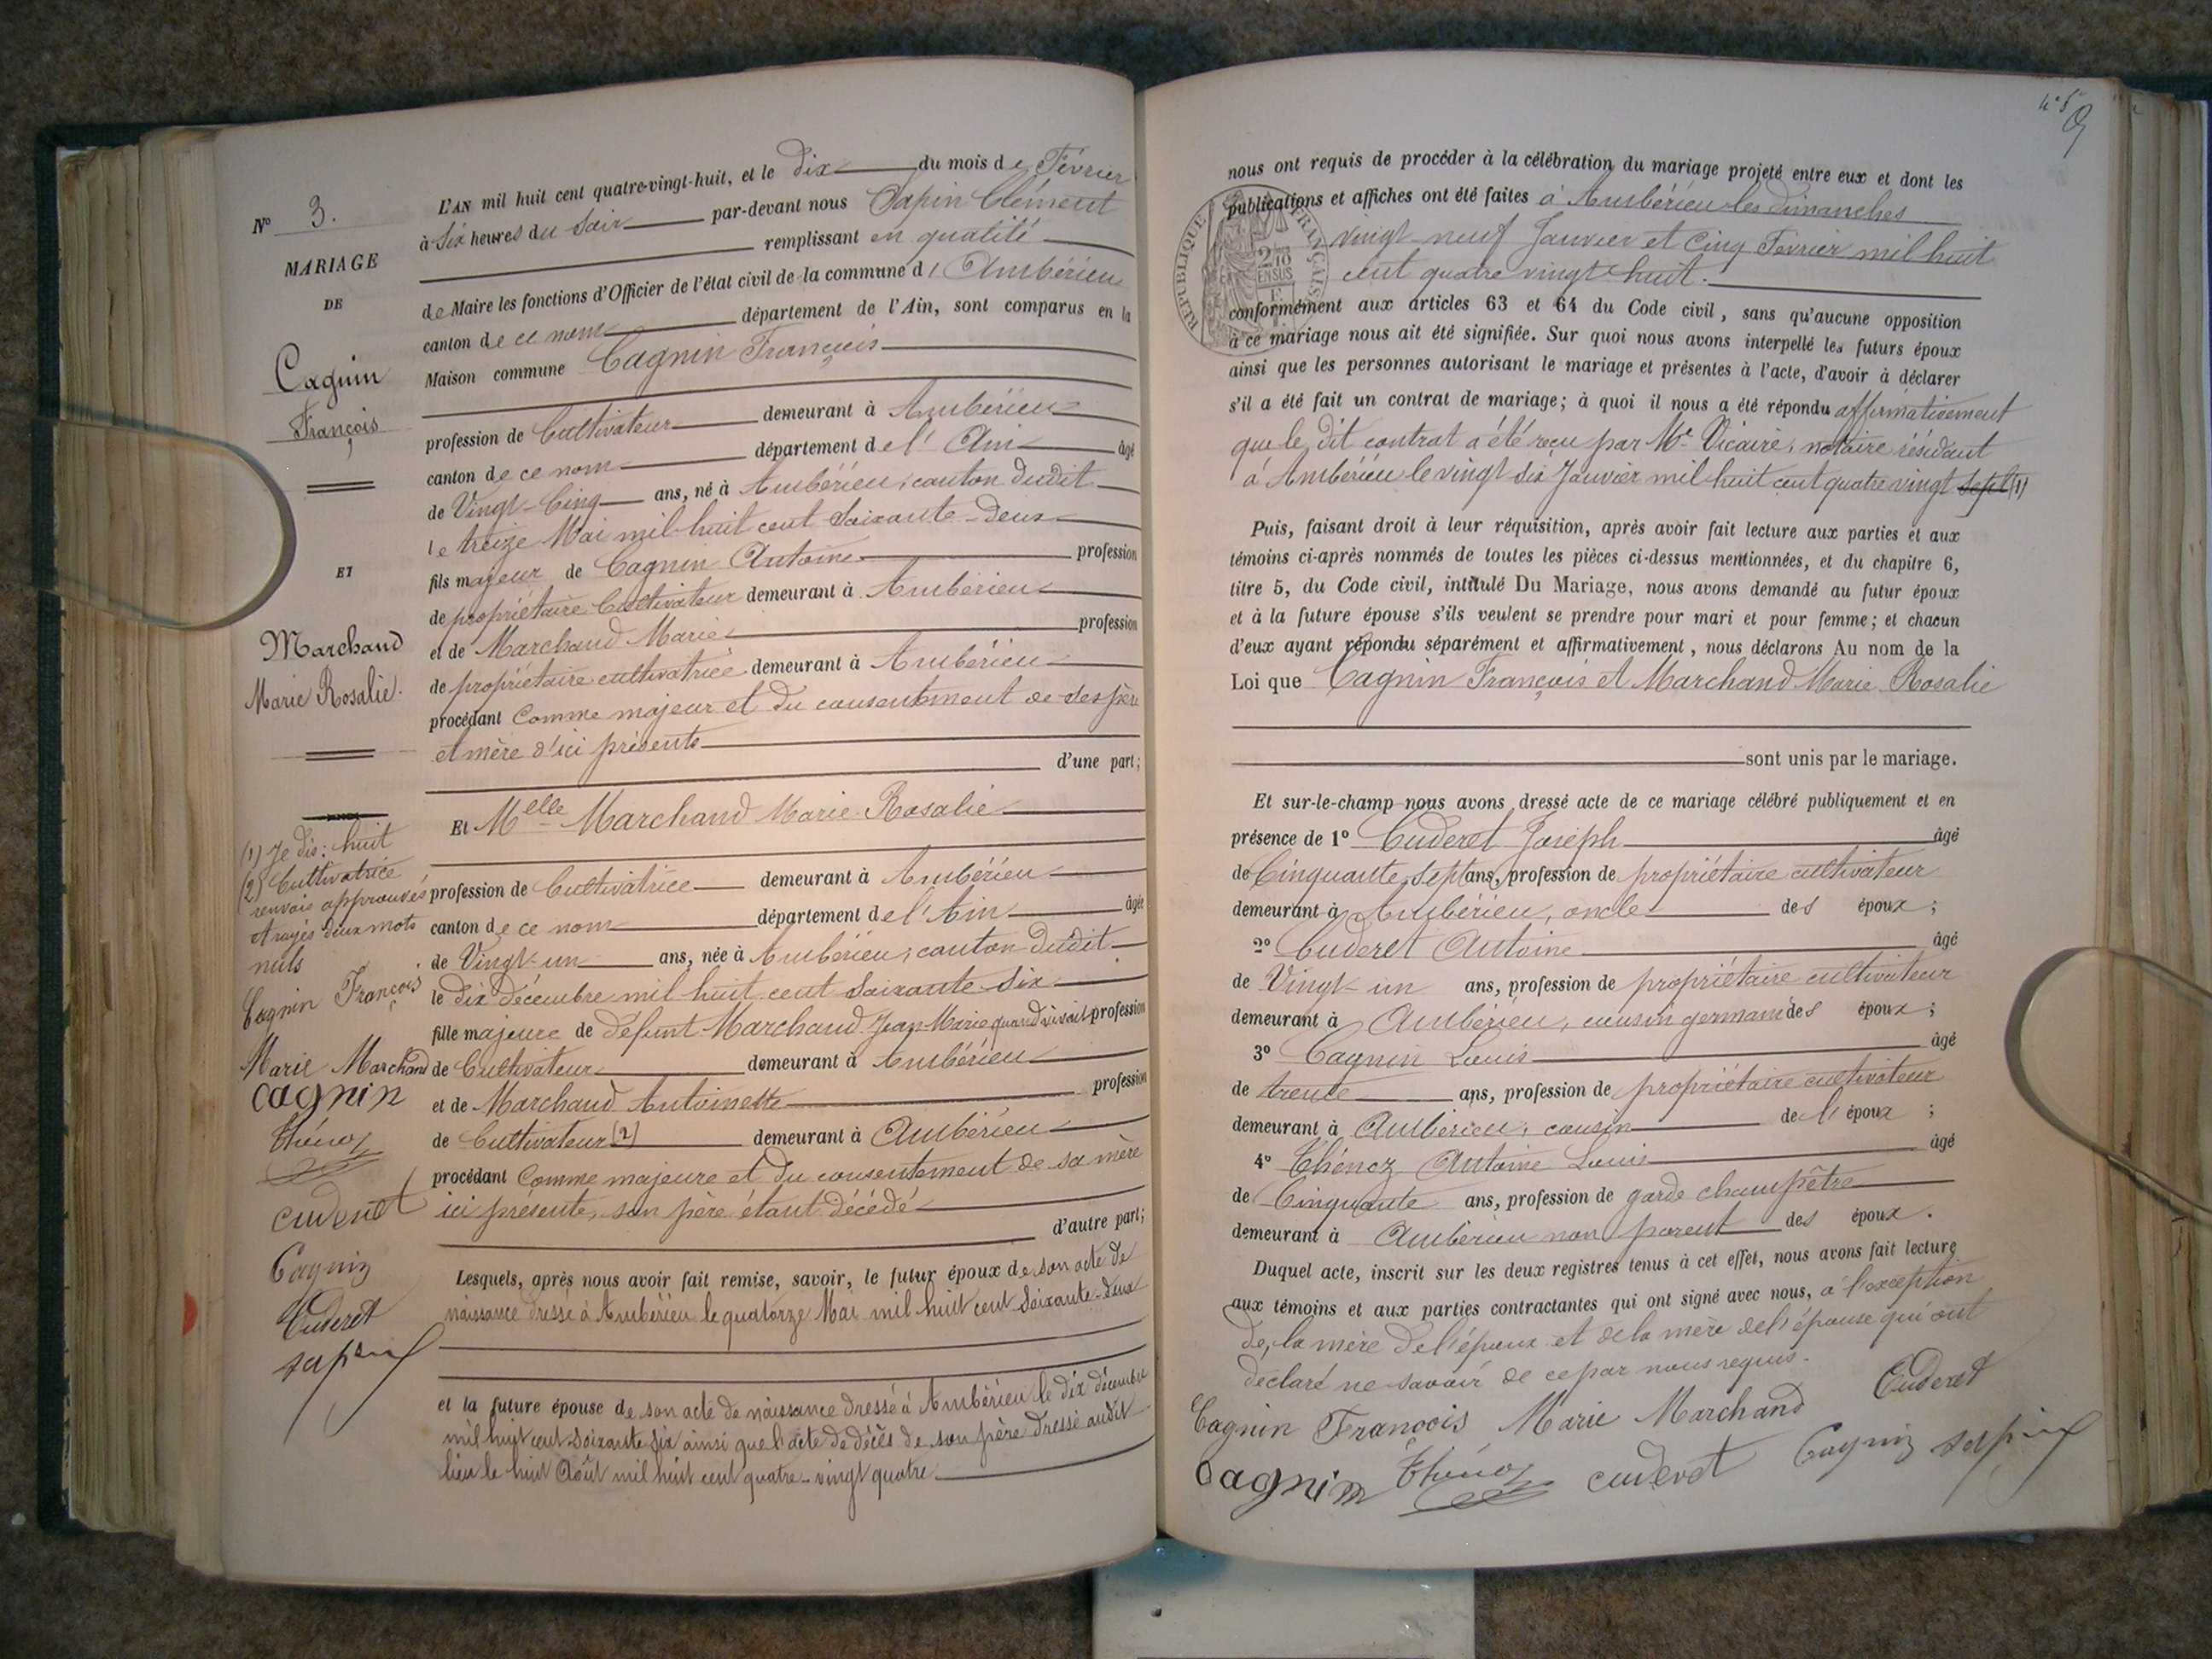 N° 3.
MARIAGE
DE
Cagnin
François
ET
Marchand
Marie Rosalie.
(1) Je dis: huit
(2) Cultivatrice
renvois approuvés
et rayés deux mots
nuls
Cagnin François
Marie Marchand
Cagnin
Thénoz
cuderet
Cagnin
Cuderet
sapin
L'AN mil huit cent quatre-vingt-huit, et le dix du mois de Février
à Six heures du Soir par-devant nous Sapin Clément
remplissant en qualité
de Maire les fonctions d'Officier de l'état civil de la commune d' Ambérieu
canton de ce nom département de l'Ain, sont comparus en la
Maison commune Cagnin François
profession de Cultivateur demeurant à Ambérieu
canton de ce nom département de l' Ain âgé
de Vingt-Cinq ans, né à Ambérieu, canton dudit
le treize Mai mil huit cent soixante-deux
fils majeur de Cagnin Antoine profession
de propriétaire Cultivateur demeurant à Ambérieu
et de Marchand Marie profession
de propriétaire cultivatrice demeurant à Ambérieu
procédant Comme majeur et du consentement de ses père
et mère d'ici présents
d'une part;
Et Melle Marchand Marie-Rosalie
profession de Cultivatrice demeurant à Ambérieu
canton de ce nom département de l'Ain âgée
de Vingt-un ans, née à Ambérieu, canton dudit
le dix décembre mil huit cent soixante-six
fille majeure de défunt Marchand Jean Marie quand vivait profession
de Cultivateur demeurant à Ambérieu
et de Marchand Antoinette profession
de Cultivateur (2) demeurant à Ambérieu
procédant Comme majeure et du consentement de sa mère
ici présente, son père étant décédé
d'autre part;
Lesquels, après nous avoir fait remise, savoir, le futur époux de son acte de
naissance dressé à Ambérieu le quatorze Mai mil huit cent soixante-deux
et la future épouse de son acte de naissance dressé à Ambérieu le dix décembre
mil huit cent soixante six ainsi que l'acte de décès de son père dressé audit
lieu le huit Août mil huit cent quatre-vingt quatre
nous ont requis de procéder à la célébration du mariage projeté entre eux et dont les
publications et affiches ont été faites à Ambérieu les dimanches
vingt-neuf Janvier et Cinq Février mil huit
cent quatre vingt huit.
RÉPUBLIQUE FRANÇAISE
conformément aux articles 63 et 64 du Code civil, sans qu'aucune opposition
à ce mariage nous ait été signifiée. Sur quoi nous avons interpellé les futurs époux
ainsi que les personnes autorisant le mariage et présentes à l'acte, d'avoir à déclarer
s'il a été fait un contrat de mariage; à quoi il nous a été répondu affirmativement
que le dit contrat a été reçu par Me Vicaire, notaire résidant
à Ambérieu le vingt six Janvier mil huit cent quatre vingt sept (1)
Puis, faisant droit à leur réquisition, après avoir fait lecture aux parties et aux
témoins ci-après nommés de toutes les pièces ci-dessus mentionnées, et du chapitre 6,
titre 5, du Code civil, intitulé Du Mariage, nous avons demandé au futur époux
et à la future épouse s'ils veulent se prendre pour mari et pour femme; et chacun
d'eux ayant répondu séparément et affirmativement, nous déclarons Au nom de la
Loi que Cagnin François et Marchand Marie Rosalie
sont unis par le mariage.
Et sur-le-champ nous avons dressé acte de ce mariage célébré publiquement et en
présence de 1° Cuderet Joseph âgé
de Cinquante Sept ans, profession de propriétaire cultivateur
demeurant à Ambérieu, oncle des époux;
2° Cuderet Antoine âgé
de Vingt-un ans, profession de propriétaire cultivateur
demeurant à Ambérieu, cousin germain des époux;
3° Cagnin Louis âgé
de trente ans, profession de propriétaire cultivateur
demeurant à Ambérieu, cousin de l' époux;
4° Thénoz Antoine Louis âgé
de Cinquante ans, profession de garde champêtre
demeurant à Ambérieu non parent des époux.
Duquel acte, inscrit sur les deux registres tenus à cet effet, nous avons fait lecture
aux témoins et aux parties contractantes qui ont signé avec nous, à l'exception
de, la mère de l'époux et de la mère de l'épouse qui ont
déclaré ne savoir de ce par nous requis.
Cagnin François Marie Marchand Cuderet
Cagnin Thénoz cuderet Cagnin sapin